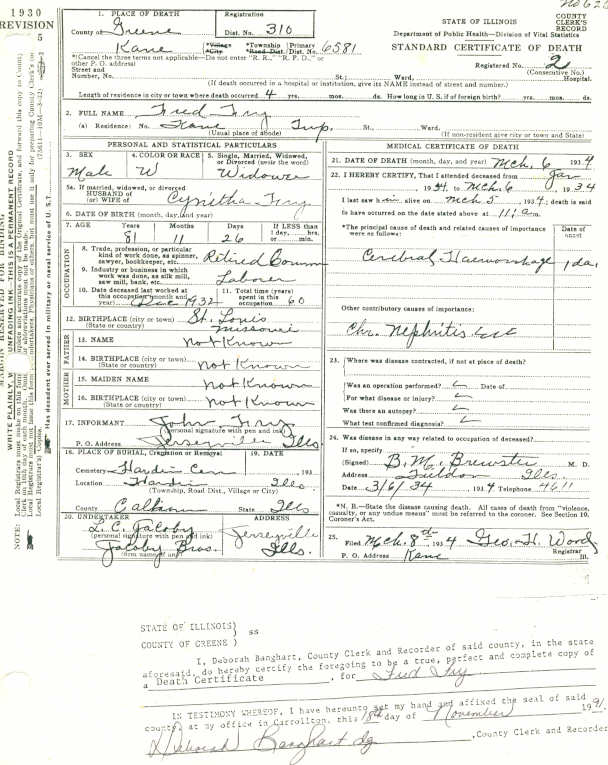 1930
REVISION
5
No 620
COUNTY
CLERK'S
RECORD
1. PLACE OF DEATH
County of Greene
Kane
Registration
Dist. No. 310
*Village
*City
*Township
*Road Dist.
Primary
Dist. No. 6581
STATE OF ILLINOIS
Department of Public Health—Division of Vital Statistics
STANDARD CERTIFICATE OF DEATH
*(Cancel the three terms not applicable—Do not enter "R. R.," "R. F. D.," or
other P. O. address)
Registered No. 2
(Consecutive No.)
Street and
Number, No. St.; Ward, Hospital.
(If death occurred in a hospital or institution, give its NAME instead of street and number.)
Length of residence in city or town where death occurred 4 yrs. mos. ds. How long in U. S. if of foreign birth? yrs. mos. ds.
2. FULL NAME Fred Fry
(a) Residence: No. Kane Twp. St., Ward,
(Usual place of abode) (If non-resident give city or town and State)
PERSONAL AND STATISTICAL PARTICULARS
3. SEX
Male
4. COLOR OR RACE
W
5. Single, Married, Widowed,
or Divorced (write the word)
Widower
5a. If married, widowed, or divorced
HUSBAND of
(or) WIFE of Cynitha Fry
6. DATE OF BIRTH (month, day, and year)
7. AGE Years Months Days If LESS than
1 day, hrs.
or min.
81 11 26
OCCUPATION
8. Trade, profession, or particular
kind of work done, as spinner,
sawyer, bookkeeper, etc. Retired Common
9. Industry or business in which
work was done, as silk mill,
saw mill, bank, etc. Laborer
10. Date deceased last worked at
this occupation (month and
year) Dec 1932
11. Total time (years)
spent in this
occupation 60
12. BIRTHPLACE (city or town) St. Louis
(State or country) Missouri
FATHER
13. NAME not Known
14. BIRTHPLACE (city or town)
(State or country) not Known
MOTHER
15. MAIDEN NAME not Known
16. BIRTHPLACE (city or town)
(State or country) not Known
17. INFORMANT John Fry
(personal signature with pen and ink)
P. O. Address Jerseyville Ills.
18. PLACE OF BURIAL, Cremation or Removal
19. DATE
Cemetery Hardin Cem , 193
Location Hardin Ills
(Township, Road Dist., Village or City)
County Calhoun State Ills
20. UNDERTAKER
L. C. Jacoby
(personal signature with pen and ink)
Jacoby Bros.
(firm name, if any)
ADDRESS
Jerseyville
Ills.
MEDICAL CERTIFICATE OF DEATH
21. DATE OF DEATH (month, day, and year) Mch. 6 1934
22. I HEREBY CERTIFY, That I attended deceased from Jan
, 1934, to Mch. 6 , 1934
I last saw him alive on Mch. 5 , 1934; death is said
to have occurred on the date stated above at 11: a.m.
*The principal cause of death and related causes of importance
were as follows:
Date of
onset
Cerebral Haemorrhage 1 da.
Other contributory causes of importance:
Chr. Nephritis
23. Where was disease contracted, if not at place of death?
Was an operation performed? Date of
For what disease or injury?
Was there an autopsy?
What test confirmed diagnosis?
24. Was disease in any way related to occupation of deceased?
If so, specify
(Signed) B. M. Brewster M. D.
Address Fieldon Ills.
Date 3/6/34 , 1934 Telephone 4611
*N. B.—State the disease causing death. All cases of death from "violence,
casualty, or any undue means" must be referred to the coroner. See Section 10,
Coroner's Act.
25. Filed Mch. 8th 1934 Geo. H. Word
Registrar
P. O. Address Kane Ill.
STATE OF ILLINOIS)
) ss
COUNTY OF GREENE )
I, Deborah Banghart, County Clerk and Recorder of said county, in the state
aforesaid, do hereby certify the foregoing to be a true, perfect and complete copy of
a Death Certificate , for Fred Fry
IN TESTIMONY WHEREOF, I have hereunto set my hand and affixed the seal of said
county, at my office in Carrollton, this 18th day of November 1991.
Deborah Banghart , County Clerk and Recorder